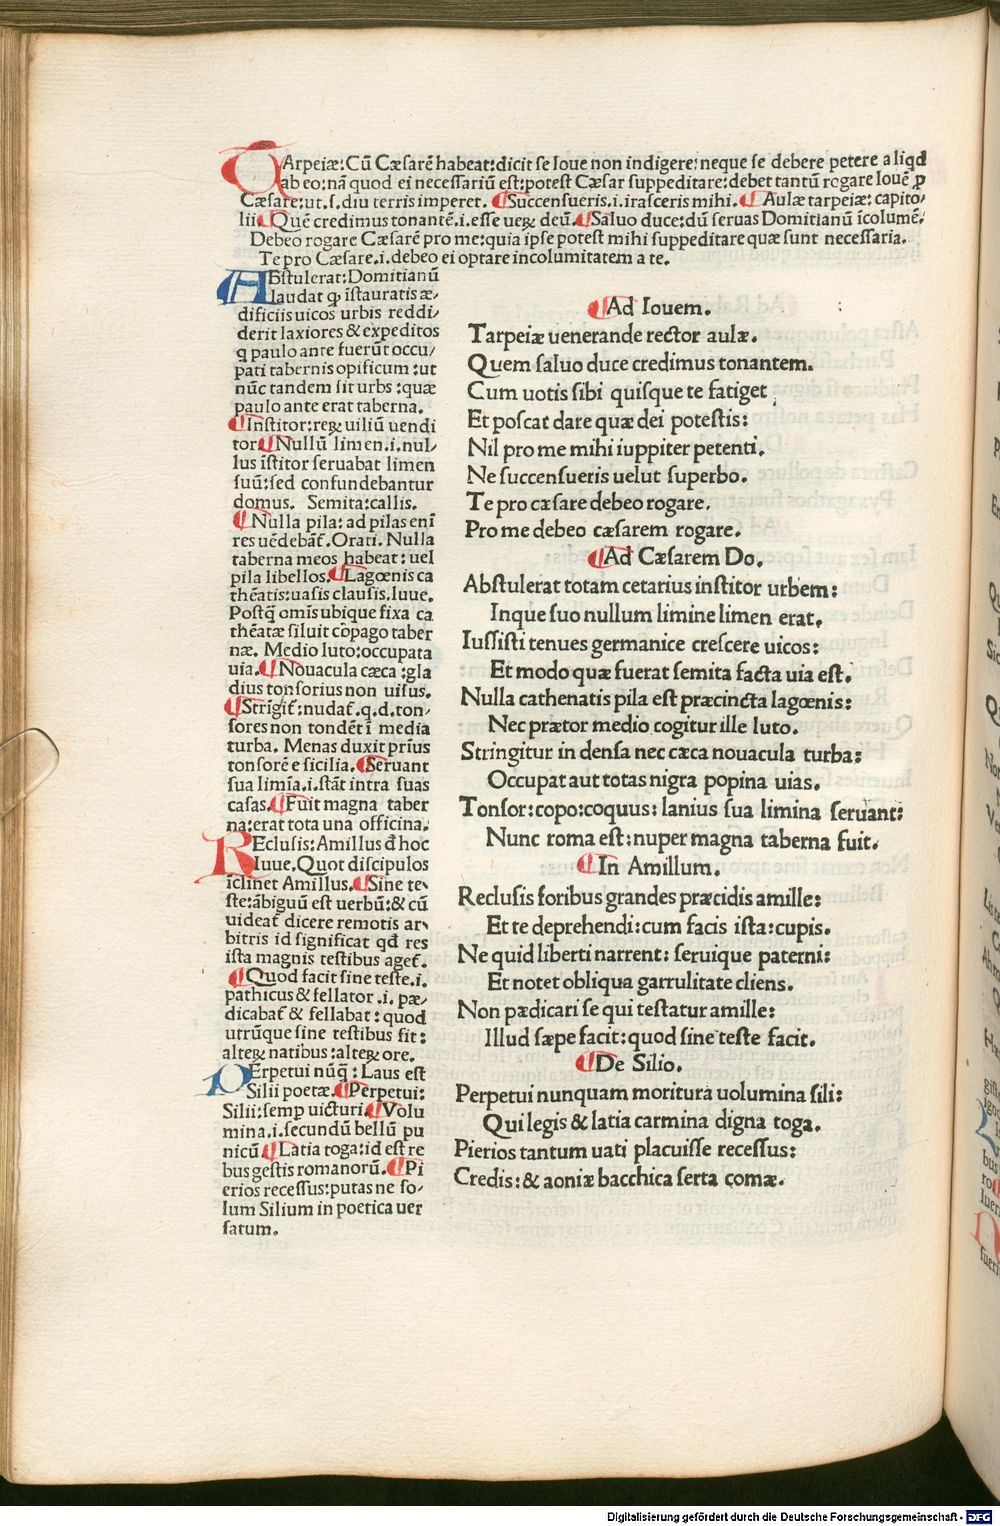 TArpeiæ: Cū Cæsarē habeat: dicit se Ioue non indigere: neque se debere petere aliqd
ab eo: nā quod ei necessariū est: potest Cæsar suppeditare: debet tantū rogare Iouē ꝓ
Cæsare: ut .s. diu terris imperet. ¶Succensueris .i. irasceris mihi. ¶Aulæ tarpeiæ: capito/
lii ¶Quē credimus tonantē .i. esse ueꝝ deū. ¶Saluo duce: dū seruas Domitianū īcolumē.
Debeo rogare Cæsarē pro me: quia ipse potest mihi suppeditare quæ sunt necessaria.
Te pro Cæsare .i. debeo ei optare incolumitatem a te.
ABstulerat: Domitianū
laudat ꝙ īstauratis æ/
dificiis uicos urbis reddi/
derit laxiores & expeditos
q paulo ante fuerūt occu/
pati tabernis opificum: ut
nūc tandem sit urbs: quæ
paulo ante erat taberna.
¶Institor: reꝝ uiliū uendi
tor ¶Nullū limen .i. nul/
lus īstitor seruabat limen
suū: sed confundebantur
domus. Semita: callis.
¶Nulla pila: ad pilas enī
res uēdebāt. Orati. Nulla
taberna meos habeat: uel
pila libellos. ¶Lagœnis ca
thēatis: uasis clausis. Iuue.
Postꝗ omīs ubique fixa ca
thēatæ siluit cōpago taber
næ. Medio luto: occupata
uia. ¶Nouacula cæca: gla
dius tonsorius non uisus.
¶Strīgit̄: nudat̄. q. d. ton/
sores non tondēt ī media
turba. Menas duxit prīus
tonsorē e sicilia. ¶Seruant
sua limīa .i. stāt intra suas
casas. ¶Fuit magna taber
na: erat tota una officina.
REclusis: Amillus đ hoc
Iuue. Quot discipulos
īclinet Amillus. ¶Sine te/
ste: ābiguū est uerbū: & cū
uideat̄ dicere remotis ar/
bitris id significat qđ res
ista magnis testibus aget̄.
¶Quod facit sine teste .i.
pathicus & fellator .i. pæ/
dicabat̄ & fellabat: quod
utrūque sine testibus fit:
alteꝝ natibus: alteꝝ ore.
PErpetui nūꝗ: Laus est
Silii poetæ. ¶Perpetui:
Silii: semp uicturi ¶Volu
mina .i. secundū bellū pu
nicū ¶Latia toga: id est re
bus gestis romanorū. ¶Pi
erios recessus: putas ne so/
lum Silium in poetica uer
satum.
¶Ad Iouem.
Tarpeiæ uenerande rector aulæ.
Quem saluo duce credimus tonantem.
Cum uotis sibi quisque te fatiget
Et poscat dare quæ dei potestis:
Nil pro me mihi iuppiter petenti.
Ne succensueris uelut superbo.
Te pro cæsare debeo rogare.
Pro me debeo cæsarem rogare.
¶Ad Cæsarem Do.
Abstulerat totam cetarius institor urbem:
Inque suo nullum limine limen erat.
Iussisti tenues germanice crescere uicos:
Et modo quæ fuerat semita facta uia est.
Nulla cathenatis pila est præcincta lagœnis:
Nec prætor medio cogitur ille luto.
Stringitur in densa nec cæca nouacula turba:
Occupat aut totas nigra popina uias.
Tonsor: copo: coquus: lanius sua limina seruant:
Nunc roma est: nuper magna taberna fuit.
¶In Amillum.
Reclusis foribus grandes præcidis amille:
Et te deprehendi: cum facis ista: cupis.
Ne quid liberti narrent: seruique paterni:
Et notet obliqua garrulitate cliens.
Non pædicari se qui testatur amille:
Illud sæpe facit: quod sine teste facit.
¶De Silio.
Perpetui nunquam moritura uolumina sili:
Qui legis & latia carmina digna toga.
Pierios tantum uati placuisse recessus:
Credis: & aoniæ bacchica serta comæ.
Digitalisierung gefördert durch die Deutsche Forschungsgemeinschaft - DFG